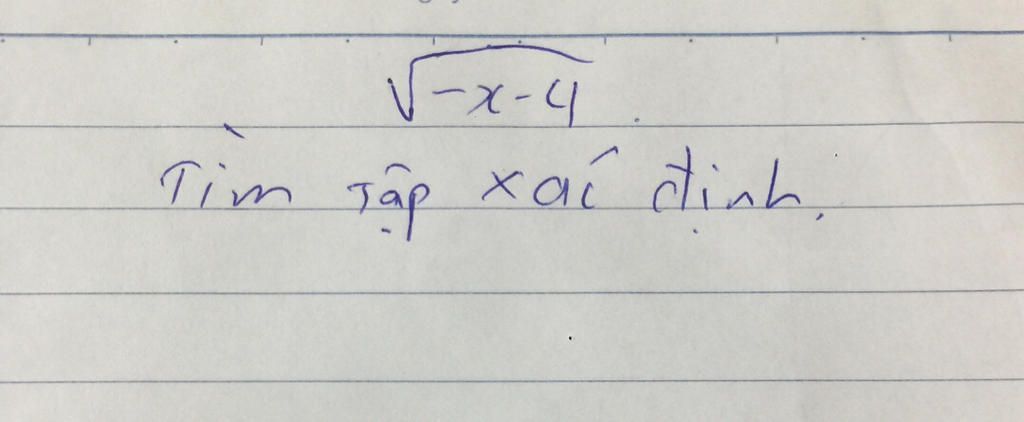 √(-x-4)
Tìm Tập xác định.